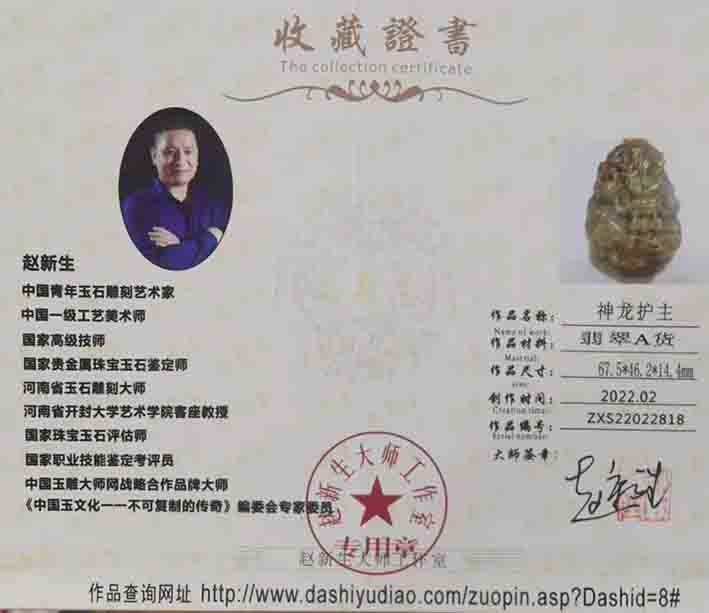 收藏證書
The collection certificate
赵新生
中国青年玉石雕刻艺术家
中国一级工艺美术师
国家高级技师
国家贵金属珠宝玉石鉴定师
河南省玉石雕刻大师
河南省开封大学艺术学院客座教授
国家珠宝玉石评估师
国家职业技能鉴定考评员
中国玉雕大师网战略合作品牌大师
《中国玉文化一一不可复制的传奇》编委会专家委员
作品名称： 神龙护主
Name of work:
作品材料： 翡翠A货
Material:
作品尺寸： 67.5*46.2*14.4mm
size:
创作时间： 2022.02
Creation time:
作品编号： ZXS22022818
Serial number:
大师签章：
赵新生大师工作室
专用章
赵新生大师工作室
作品查询网址 http://www.dashiyudiao.com/zuopin.asp?Dashid=8#